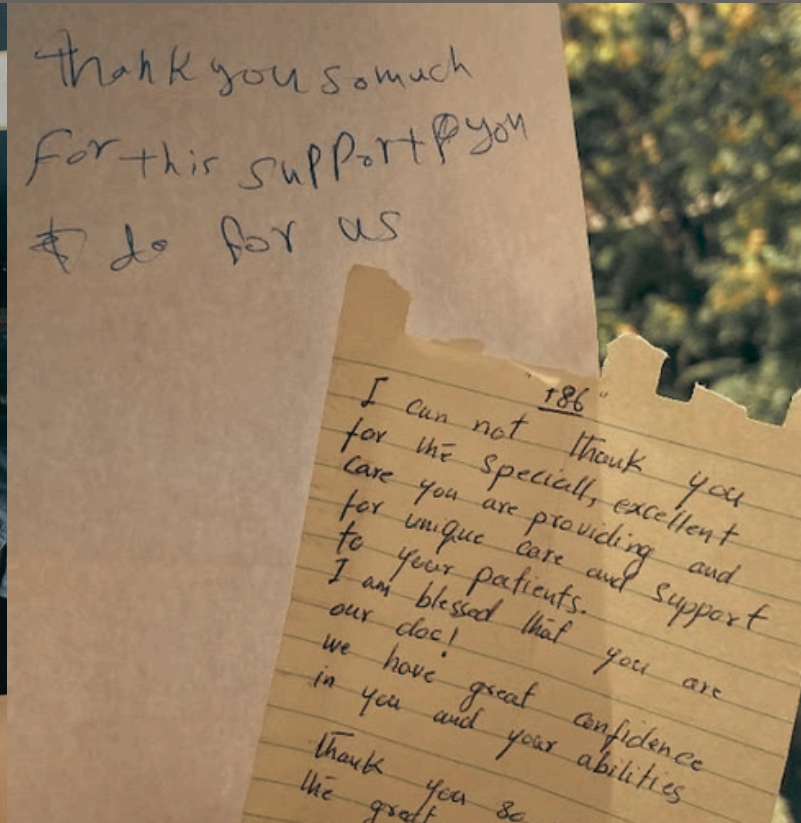 Thank you so much
For this support you
do for us
"786"
I can not thank you
for the speciall, excellent
care you are providing and
for unique care and support
to your patients.
I am blessed that you are
our doc!
we have great confidence
in you and your abilities
Thank you so
the great